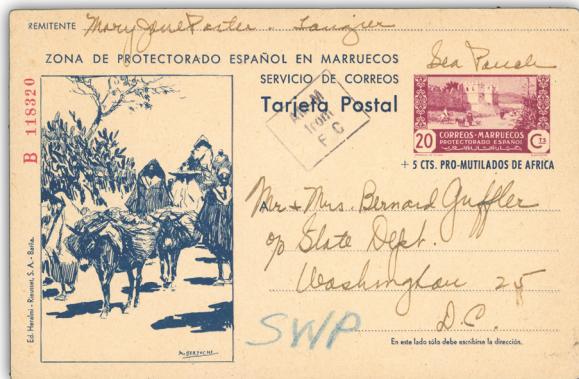 REMITENTE Mary Jane Porter - Tangier
ZONA DE PROTECTORADO ESPAÑOL EN MARRUECOS
SERVICIO DE CORREOS
Tarjeta Postal
Sea Pouch
from
F C
20 CORREOS-MARRUECOS CTS
PROTECTORADO ESPAÑOL
+ 5 CTS. PRO-MUTILADOS DE AFRICA
B 118320
A Mr + Mrs. Bernard Guffler
c/o State Dept.
Washington 25
D.C.
SWP
En este lado sólo debe escribirse la dirección.
M. BERTUCHI
Ed. Heraclio - Rieusset, S. A. - Barna.